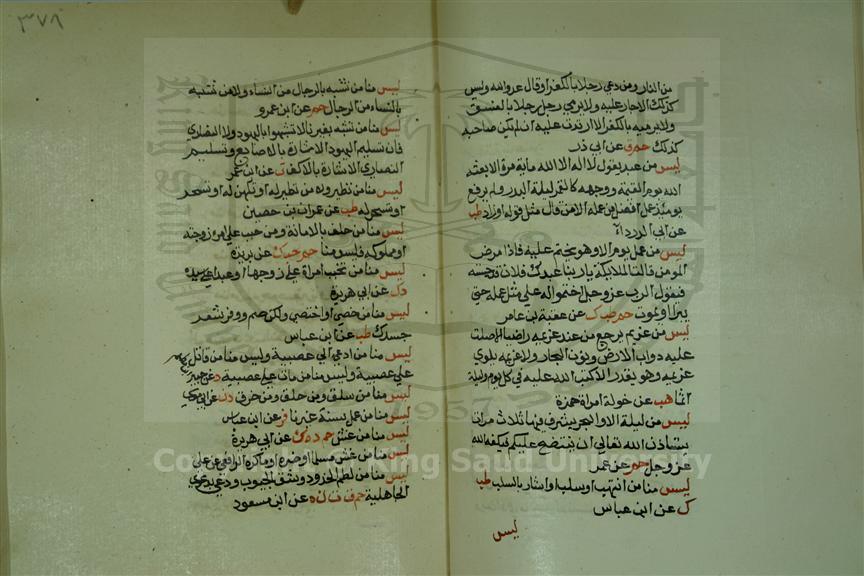 من النار ومن دعي رجلا بالكفر او قال عدو الله وليس
كذلك الا حار عليه ولا يرمي رجل رجلا بالفسق
ولا يرميه بالكفر الا ارتدت عليه ان لم يكن صاحبه
كذلك حم ق عن ابي ذر
ليس من عبد يقول لا اله الا الله ماية مرة الا بعثه
الله يوم القيمة ووجهه كالقمر ليلة البدر ولم يرفع
يومئذ عمل افضل من عمله الا من قال مثل قوله او زاد طب
عن ابي الدرداء
ليس من عمل يوم الا وهو يختم عليه فاذا مرض
المومن قالت الملايكة يا ربنا عبدك فلان قد حبسته
فيقول الرب عز وجل اختموا له علي مثل عمله حتي
يبرا او يموت حم طب ك عن عقبة بن عامر
ليس من غريم يرجع من عند غريمه راضيا الا صلت
عليه دواب الارض ونون البحار ولا غريم يلوي
غريمه وهو يقدر الا كتب الله عليه في كل يوم وليلة
اثما هب عن خولة امراة حمزة
ليس من ليلة الا والبحر يشرف فيها ثلاث مرات
يستاذن الله تعالي ان ينتضح عليكم فيكفه الله
عز وجل حم عن عمر
ليس منا من انتهب او سلب او اشار بالسلب طب
ك عن ابن عباس
ليس
٣٧٨
ليس منا من تشبه بالرجال من النساء ولا من تشبه
بالنساء من الرجال حم عن ابن عمرو
ليس منا من تشبه بغيرنا لا تشبهوا باليهود ولا النصاري
فان تسليم اليهود الاشارة بالاصابع وتسليم
النصاري الاشارة بالاكف ت عن ابن عمر
ليس منا من تطير ولا من تطير له او تكهن له او تسحر
او تسحر له طب عن عمران بن حصين
ليس منا من حلف بالامانة ومن خبب علي امرء زوجته
او مملوكه فليس منا حم حب ك عن بريدة
ليس منا من خبب امراة علي زوجها او عبدا علي سيده
د ك عن ابي هريرة
ليس منا من خصي او اختصي ولكن صم ووفر شعر
جسدك طب عن ابن عباس
ليس منا من دعي الي عصبية وليس منا من قاتل
علي عصبية وليس منا من مات علي عصبية د عن جبير
ليس منا من سلق ومن حلق ومن خرق د ن عن ابي موسي
ليس منا من عمل بسنة غيرنا فر عن ابن عباس
ليس منا من غش حم د ه ك عن ابي هريرة
ليس منا من غش مسلما او ضره او ماكره الرافعي عن علي
ليس منا من لطم الخدود وشق الجيوب ودعي بدعوي
الجاهلية حم ق ت ن ه عن ابن مسعود
Copyright © King Saud University
1957